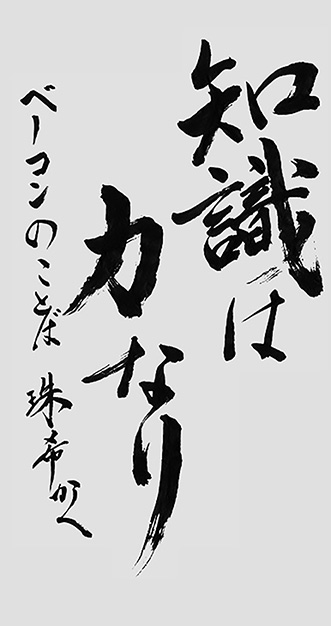 知識は
力なり
ベーコンのことば 珠希かく